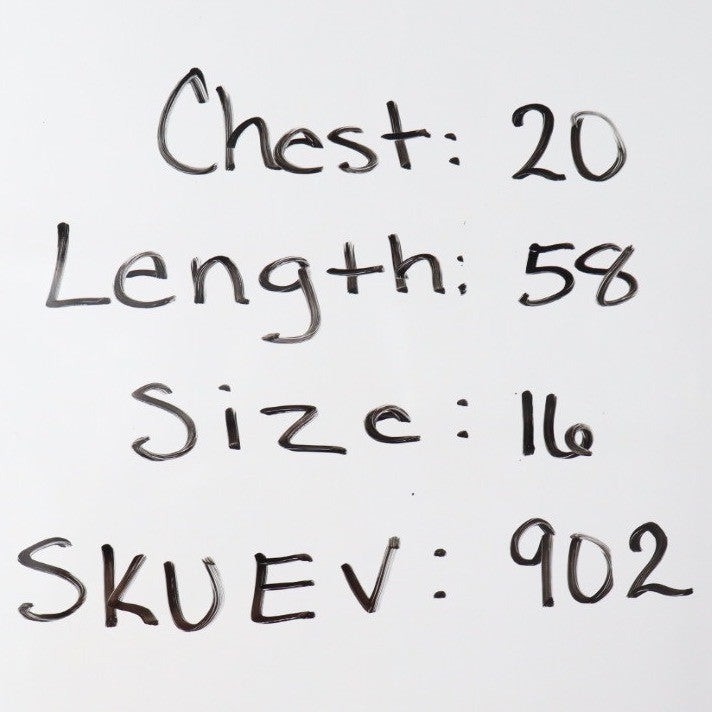 Chest: 20
Length: 58
Size: 16
SKUEV: 902